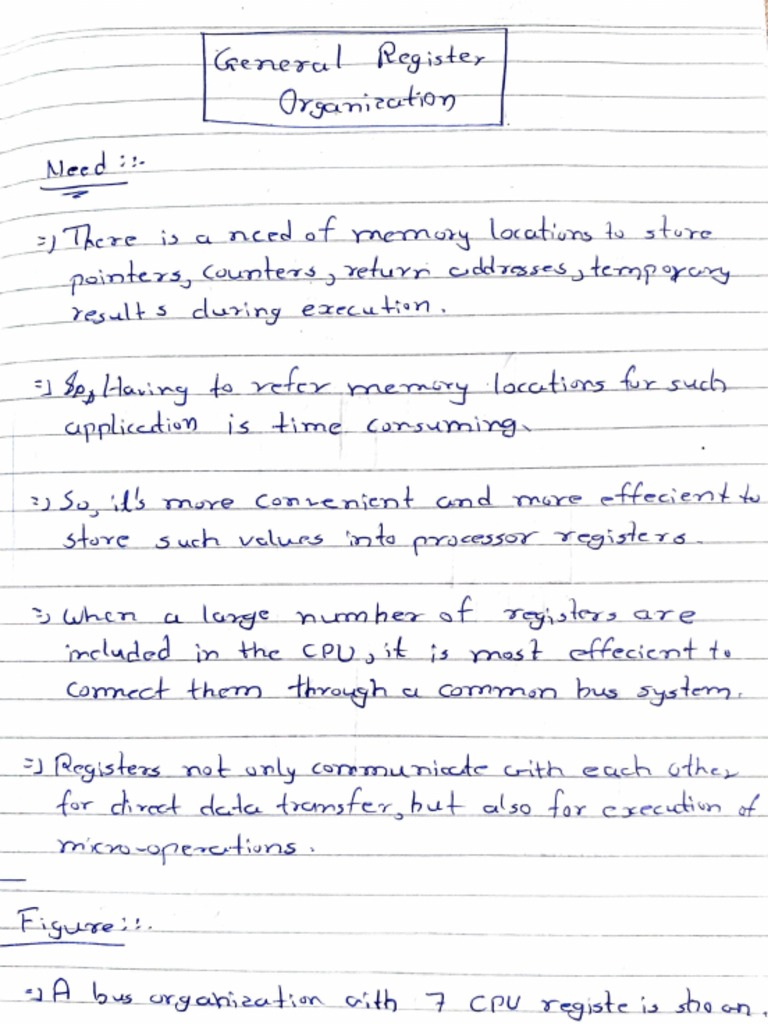 General Register
Organization
Need ::-
=) There is a need of memory locations to store
pointers, counters, return addresses, temporary
results during execution.
=) So, Having to refer memory locations for such
application is time consuming.
=) So, it's more convenient and more effecient to
store such values into processor registers.
=) When a large number of registers are
included in the CPU, it is most effecient to
connect them through a common bus system.
=) Registers not only communicate with each other
for direct data transfer, but also for execution of
micro-operations.
Figure ::-
=) A bus organization with 7 CPU registe is shown.